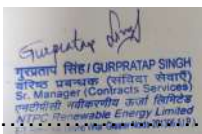 Gurpratap Singh
गुरप्रताप सिंह/GURPRATAP SINGH
वरिष्ठ प्रबन्धक (संविदा सेवाएँ)
Sr. Manager (Contracts Services)
एनटीपीसी नवीकरणीय ऊर्जा लिमिटेड
NTPC Renewable Energy Limited